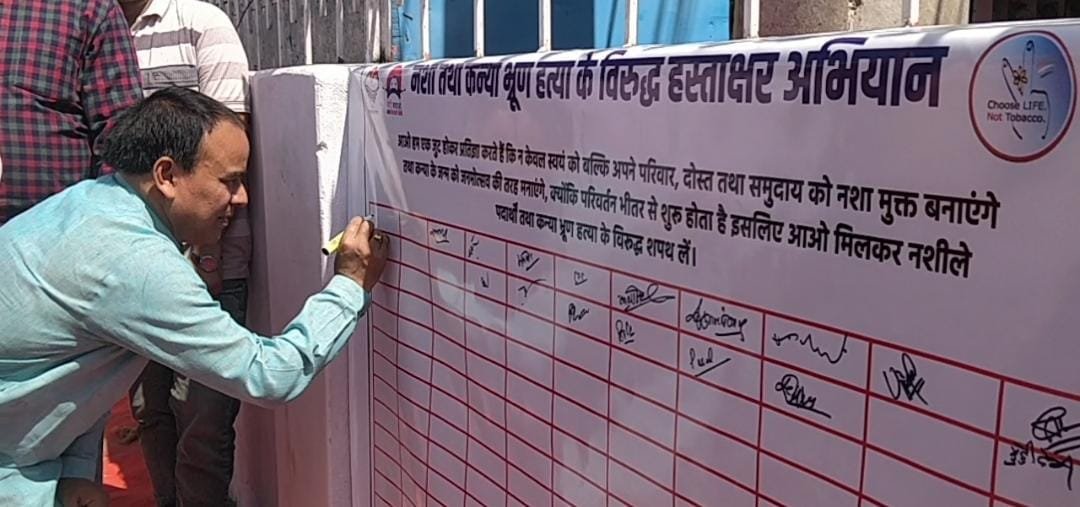 नशा तथा कन्या भ्रूण हत्या के विरुद्ध हस्ताक्षर अभियान
Choose LIFE.
Not Tobacco.
आओ हम एक जुट होकर प्रतिज्ञा करते हैं कि न केवल स्वयं को बल्कि अपने परिवार, दोस्त तथा समुदाय को नशा मुक्त बनाएंगे
तथा कन्या के जन्म को जनमोत्सव की तरह मनाएंगे, क्योंकि परिवर्तन भीतर से शुरू होता है इसलिए आओ मिलकर नशीले
पदार्थों तथा कन्या भ्रूण हत्या के विरुद्ध शपथ लें।